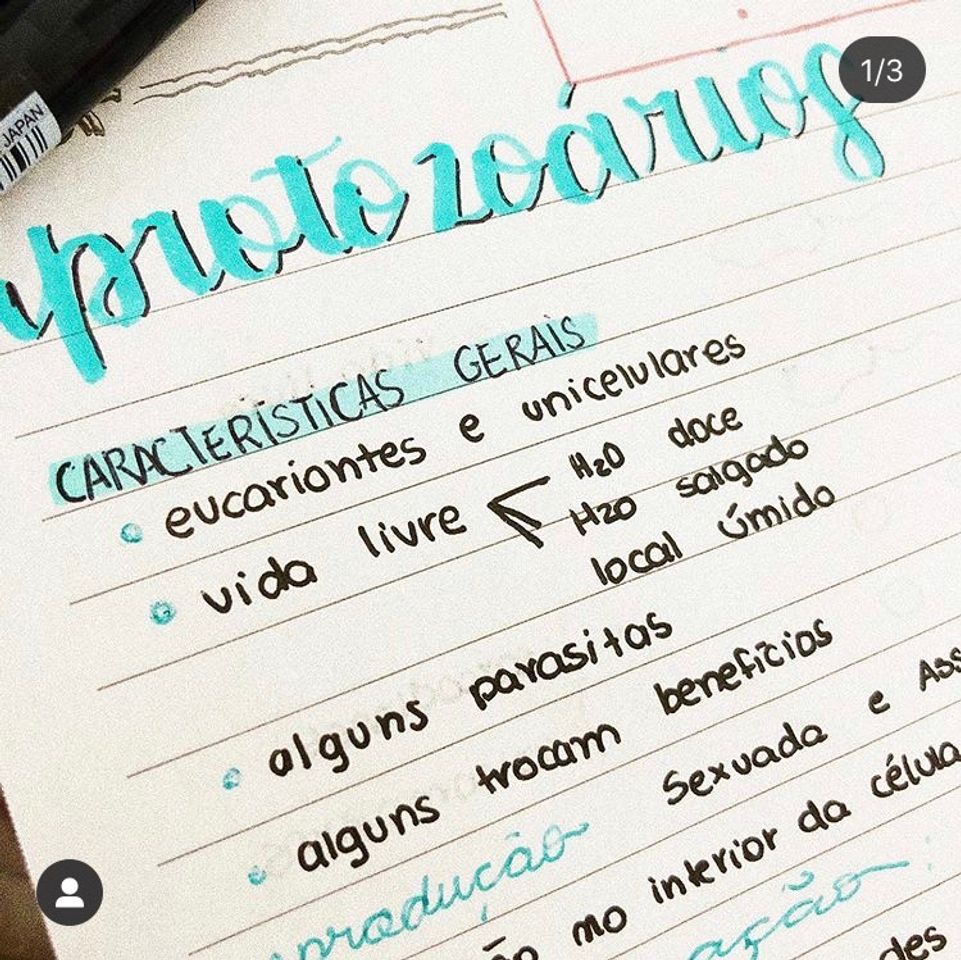 1/3
JAPAN
protozoários
CARACTERÍSTICAS GERAIS
eucariontes e unicelulares
vida livre H2O doce
H2O salgado
local úmido
alguns parasitas
alguns trocam benefícios
Sexuada e Ass
no interior da célula